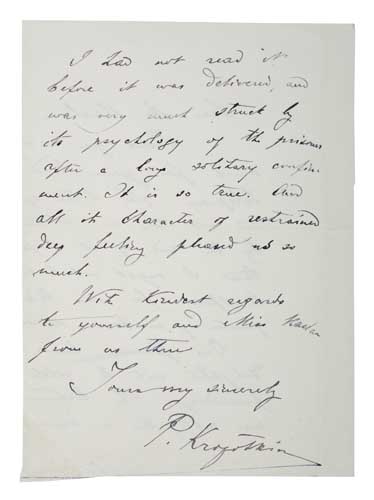 I had not read it
before it was delivered, and
was very much struck by
its psychology of the prisoner
after a long solitary confine
ment. It is so true. And
all its character of restrained
deep feeling pleased us so
much.
With kindest regards
to yourself and Miss
from us three
Yours very sincerely
P. Kropotkin